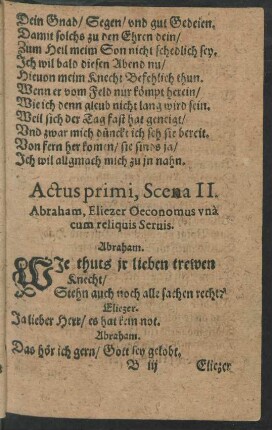 Dein Gnad/ Segen/ vnd gut Gedeien.
Damit solchs zu den Ehren dein/
Zum Heil meim Son nicht schedlich sey.
Ich wil bald diesen Abend nu/
Hieuon meim Knecht Befehlich thun.
Wenn er vom Feld nur kömpt herein/
Wie ich denn gleub nicht lang wird sein.
Weil sich der Tag fast hat geneigt/
Vnd zwar mich dünckt ich seh sie bereit.
Von fern her komen/ sie sinds ja/
Ich wil allgmach mich zu jn nahn.
Actus primi, Scena II.
Abraham, Eliezer Oeconomus vnà
cum reliquis Seruis.
Abraham.
WIe thuts jr lieben trewen
Knecht/
Stehn auch noch alle sachen recht?
Eliezer.
Ja lieber Herr/ es hat kein not.
Abraham.
Das hör ich gern/ Gott sey gelobt.
B iij Eliezer